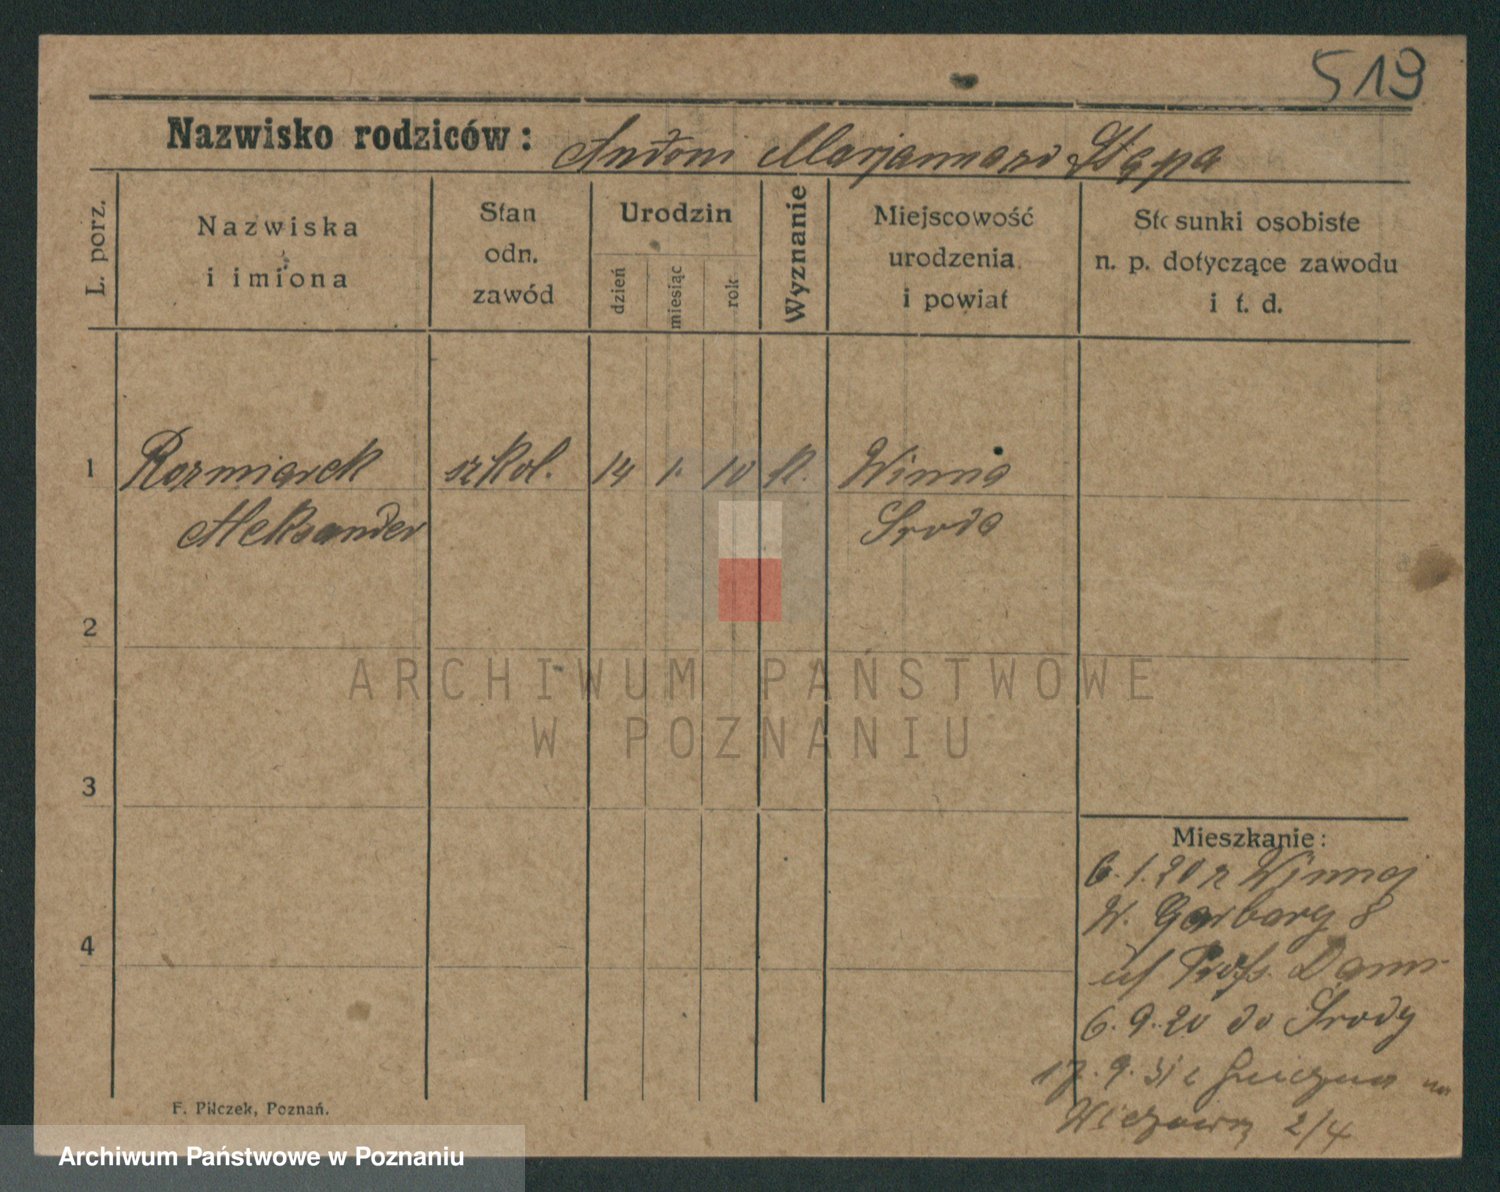 519
Nazwisko rodziców: Antoni Marjanna zd Stąpa
L. porz.
Nazwiska
i imiona
Stan
odn.
zawód
Urodzin
dzień
miesiąc
rok
Wyznanie
Miejscowość
urodzenia
i powiat
Stosunki osobiste
n. p. dotyczące zawodu
i t. d.
1 Rozmiarek szkol. 14 1. 10 k. Winna
Aleksander Środa
2
3
4
Mieszkanie:
6.1.20 z Winnej
W. Garbary 8
u/ Dam
6.9.20 do Środy
17.9.31 z Gniezna na
2/4
F. Pilczek, Poznań.
ARCHIWUM PAŃSTWOWE
W POZNANIU
Archiwum Państwowe w Poznaniu